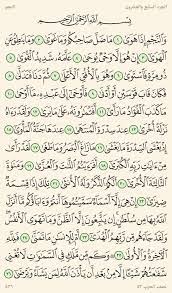 الجزء السابع والعشرون النجم
بِسْمِ اللَّهِ الرَّحْمَٰنِ الرَّحِيمِ
وَالنَّجْمِ إِذَا هَوَىٰ ١ مَا ضَلَّ صَاحِبُكُمْ وَمَا غَوَىٰ ٢ وَمَا يَنطِقُ عَنِ
الْهَوَىٰ ٣ إِنْ هُوَ إِلَّا وَحْيٌ يُوحَىٰ ٤ عَلَّمَهُ شَدِيدُ الْقُوَىٰ ٥ ذُو مِرَّةٍ
فَاسْتَوَىٰ ٦ وَهُوَ بِالْأُفُقِ الْأَعْلَىٰ ٧ ثُمَّ دَنَا فَتَدَلَّىٰ ٨ فَكَانَ قَابَ
قَوْسَيْنِ أَوْ أَدْنَىٰ ٩ فَأَوْحَىٰ إِلَىٰ عَبْدِهِ مَا أَوْحَىٰ ١٠ مَا كَذَبَ الْفُؤَادُ
مَا رَأَىٰ ١١ أَفَتُمَارُونَهُ عَلَىٰ مَا يَرَىٰ ١٢ وَلَقَدْ رَآهُ نَزْلَةً أُخْرَىٰ ١٣
عِندَ سِدْرَةِ الْمُنتَهَىٰ ١٤ عِندَهَا جَنَّةُ الْمَأْوَىٰ ١٥ إِذْ يَغْشَى
السِّدْرَةَ مَا يَغْشَىٰ ١٦ مَا زَاغَ الْبَصَرُ وَمَا طَغَىٰ ١٧ لَقَدْ رَأَىٰ
مِنْ آيَاتِ رَبِّهِ الْكُبْرَىٰ ١٨ أَفَرَأَيْتُمُ اللَّاتَ وَالْعُزَّىٰ ١٩ وَمَنَاةَ
الثَّالِثَةَ الْأُخْرَىٰ ٢٠ أَلَكُمُ الذَّكَرُ وَلَهُ الْأُنثَىٰ ٢١ تِلْكَ إِذًا قِسْمَةٌ
ضِيزَىٰ ٢٢ إِنْ هِيَ إِلَّا أَسْمَاءٌ سَمَّيْتُمُوهَا أَنتُمْ وَآبَاؤُكُم
مَّا أَنزَلَ اللَّهُ بِهَا مِن سُلْطَانٍ إِن يَتَّبِعُونَ إِلَّا الظَّنَّ وَمَا تَهْوَى الْأَنفُسُ
وَلَقَدْ جَاءَهُم مِّن رَّبِّهِمُ الْهُدَىٰ ٢٣ أَمْ لِلْإِنسَانِ مَا تَمَنَّىٰ ٢٤
فَلِلَّهِ الْآخِرَةُ وَالْأُولَىٰ ٢٥ وَكَم مِّن مَّلَكٍ فِي السَّمَاوَاتِ لَا تُغْنِي
شَفَاعَتُهُمْ شَيْئًا إِلَّا مِن بَعْدِ أَن يَأْذَنَ اللَّهُ لِمَن يَشَاءُ وَيَرْضَىٰ ٢٦
٥٢٦